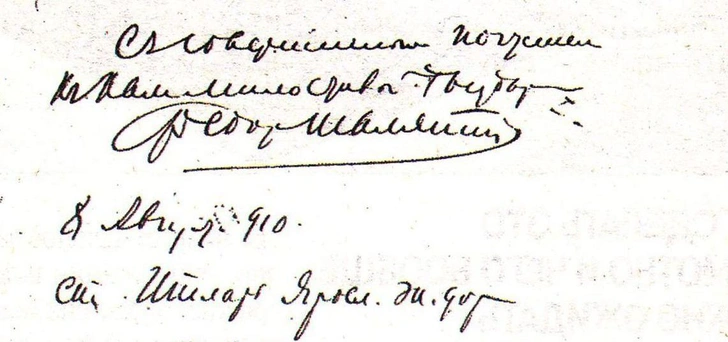 Съ совершенным почтением
к Вам милостивый Государь
Федор Шаляпин
8 Август. 910.
ст. Итларь Яросл. ж. дор